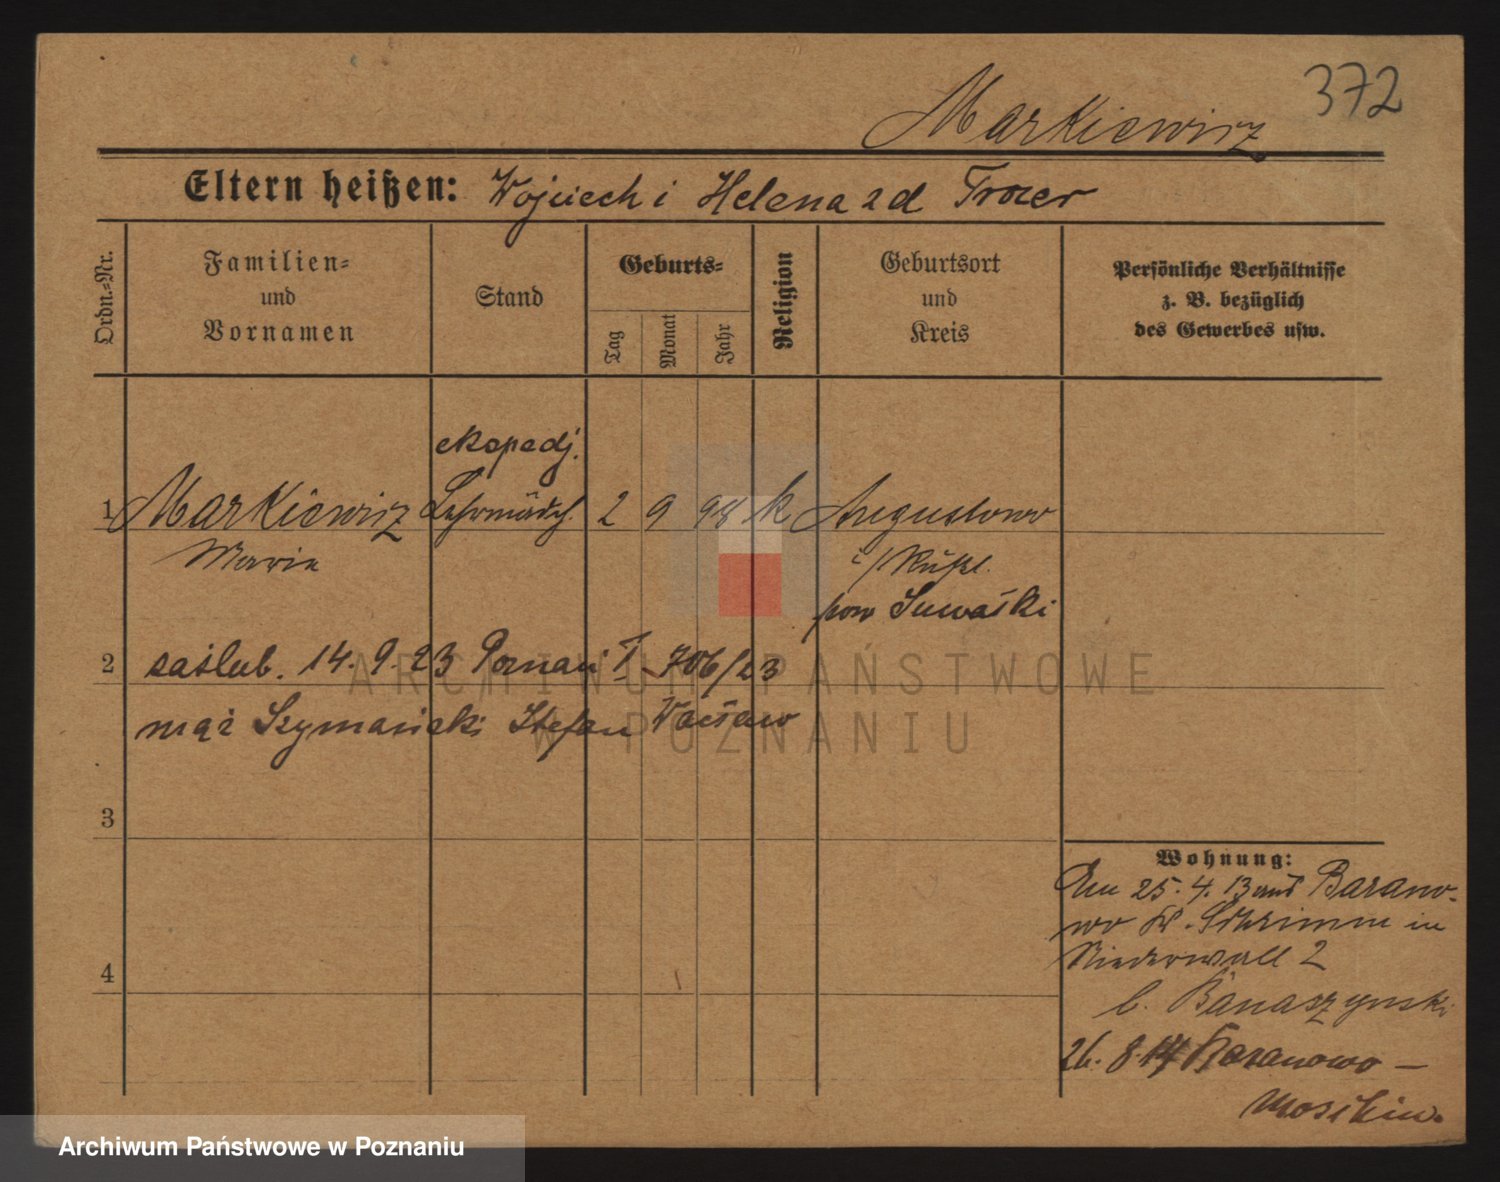 372
Markiewicz
Eltern heißen: Wojciech i Helena zd
Ordn.-Nr.
Familien-
und
Vornamen
Stand
Geburts-
Tag
Monat
Jahr
Religion
Geburtsort
und
Kreis
Persönliche Verhältnisse
z. B. bezüglich
des Gewerbes usw.
ekspedj.
1 Markiewicz Lehrmädch. 2 9 98 k Augustowo
Marie
pow Suwałki
2 zaślub. 14. 9. 23 Poznań I 706/23
mąż Szymański Stefan Wacław
3
4
Wohnung:
Am 25. 4. 13 aus Barano-
wo Kr. Schrimm in
Niederwall 2
b. Banaszynski
26. 8. 14 Baranowo —
Moschin.
ARCHIWUM PAŃSTWOWE
W POZNANIU
Archiwum Państwowe w Poznaniu